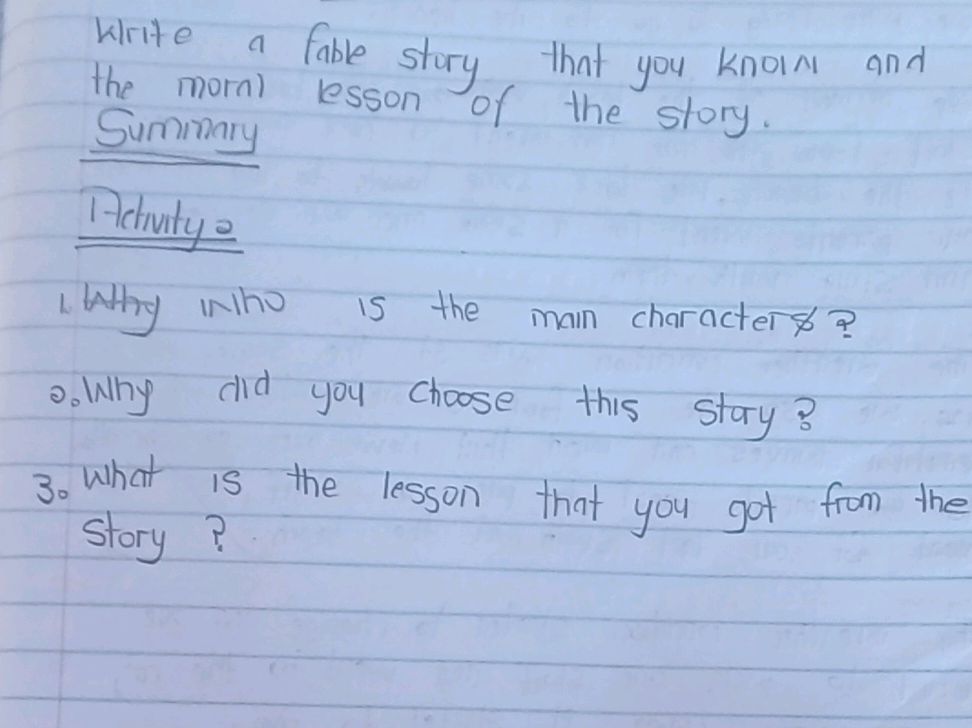 Write a fable story that you know and
the moral lesson of the story.
Summary
Activity 2
1. Why who is the main characters?
2. Why did you choose this story?
3. What is the lesson that you got from the
story?